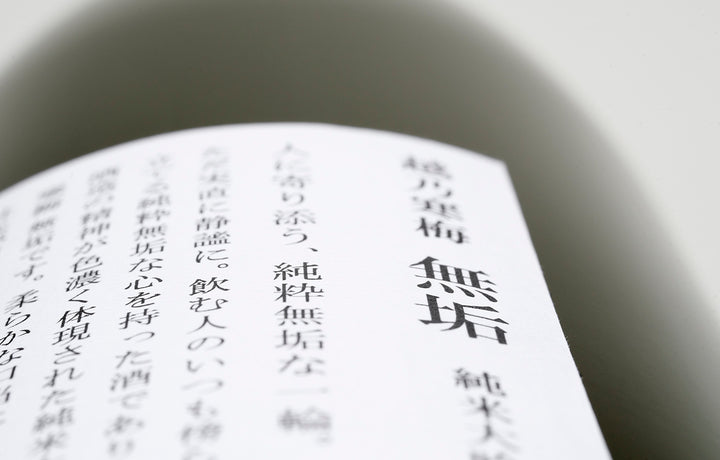 越乃寒梅 無垢 純米大
人に寄り添う、純粋無垢な一輪。
静謐に。飲む人のいつも傍
純粋無垢な心を持った酒であり
の精神が色濃く体現された純米
無垢です。柔らかな口当